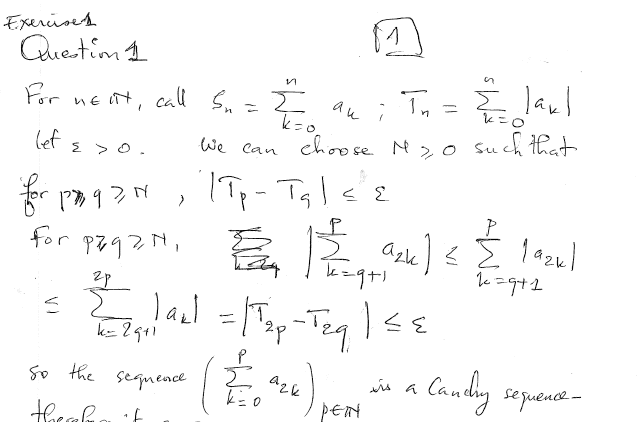 Exercise 1
Question 1
1
For n ∈ ℕ, call S_n = ∑_{k=0}^{n} a_k ; T_n = ∑_{k=0}^{n} |a_k|
let ε > 0. We can choose N ⩾ 0 such that
for p ⩾ q ⩾ N, |T_p - T_q| ≤ ε
For p ⩾ q ⩾ N, |∑_{k=q+1}^{p} a_{2k}| ≤ ∑_{k=q+1}^{p} |a_{2k}|
≤ ∑_{k=2q+1}^{2p} |a_k| = |T_{2p} - T_{2q}| ≤ ε
so the sequence (∑_{k=0}^{p} a_{2k})_{p∈ℕ} is a Cauchy sequence-